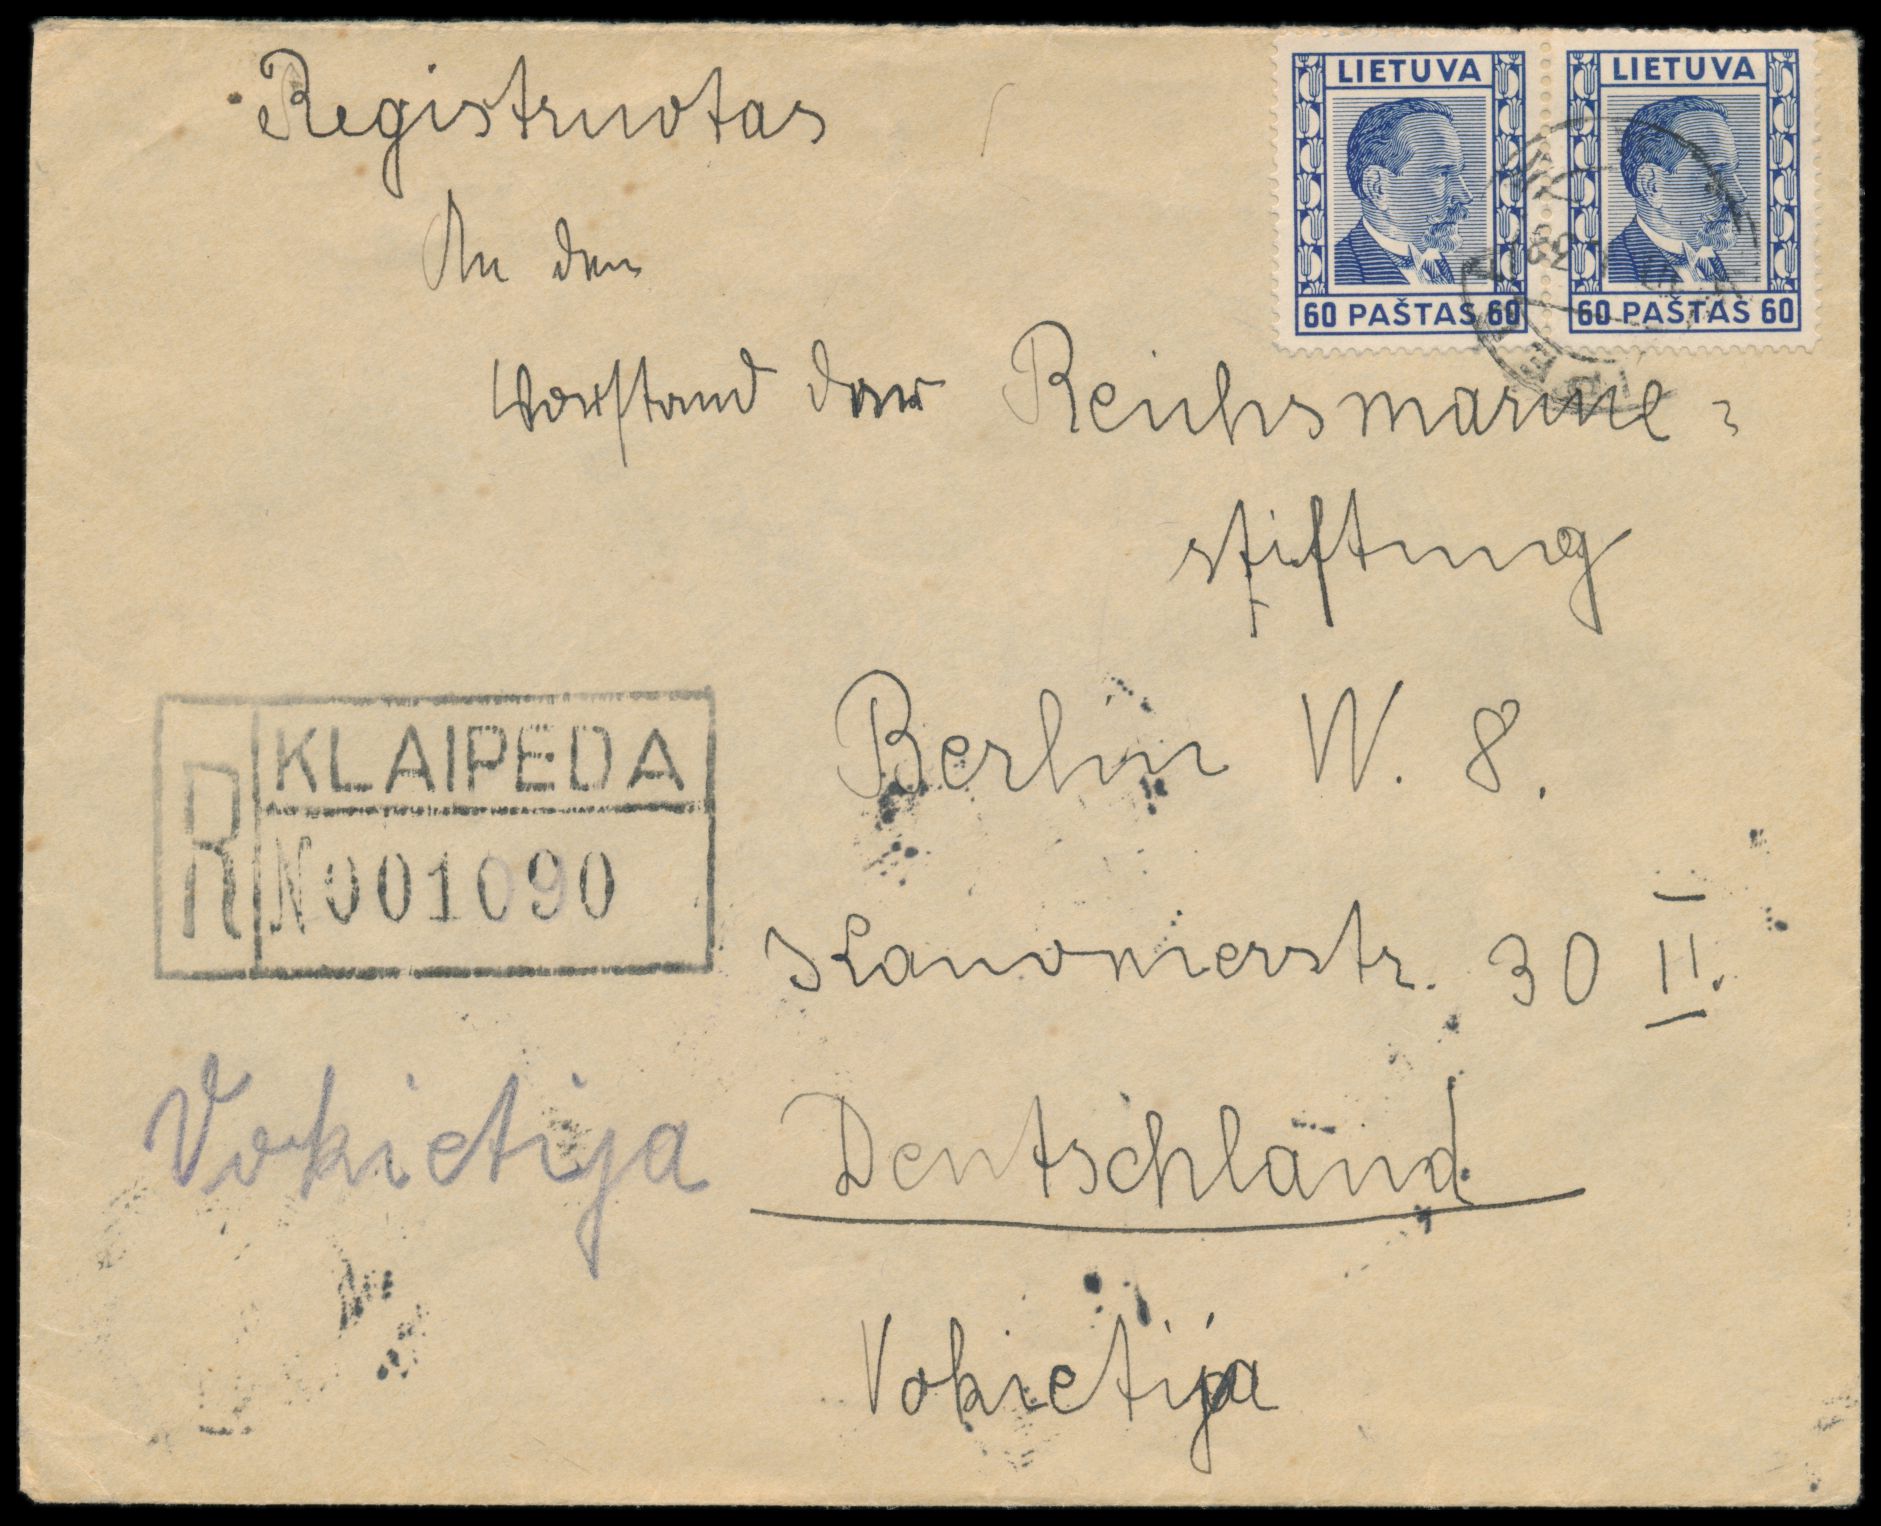 Registruotas
LIETUVA
60 PAŠTAS 60
LIETUVA
60 PAŠTAS 60
An den
Vorstand der Reichsmarine=
stiftung
R
KLAIPEDA
N001090
Berlin W. 8.
Kanonierstr. 30 II.
Vokietija
Deutschland
Vokietija